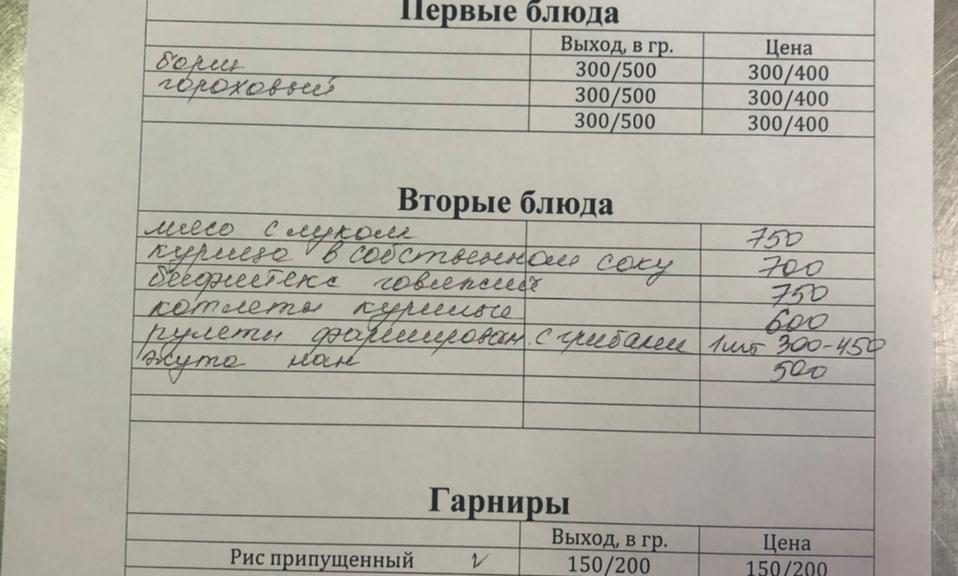 Первые блюда
Выход, в гр. Цена
борщ 300/500 300/400
гороховый 300/500 300/400
300/500 300/400
Вторые блюда
мясо с луком 750
курица в собственном соку 700
бифштекс говяжий 750
котлеты куриные 600
рулеты фарширован. с грибами 1шт 300-450
жута нан 500
Гарниры
Выход, в гр. Цена
Рис припущенный v 150/200 150/200